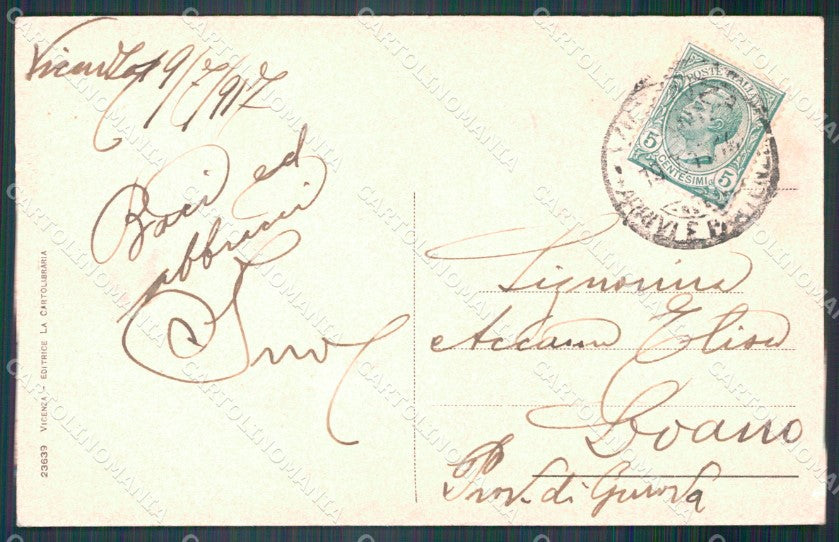 Vicenza 9/7/917
Baci ed
abbracci
POSTE ITALIANE
5 CENTESIMI 5
ARRIVI E PARTENZE
Signorina
Accame Elisa
Loano
Prov. di Genova
23639 VICENZA - EDITRICE LA CARTOLIBRARIA
CARTOLINOMANIA